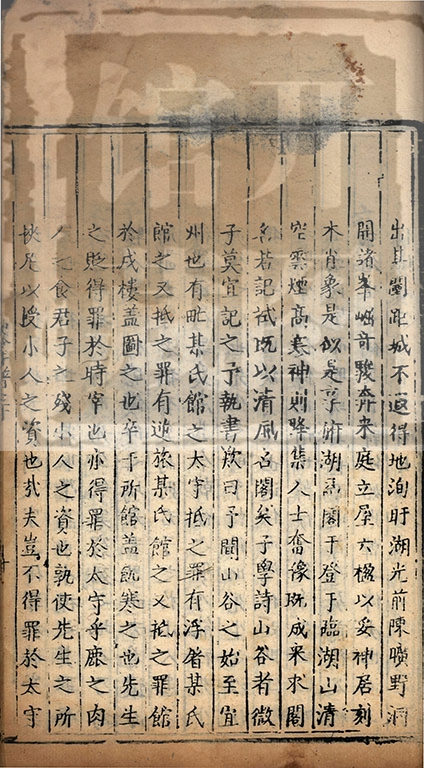 出其闉距城不遐得地洵旴湖光前陳曠野洞
開諸峯崛奇駿奔来庭立屋六楹以妥神居刻
木肖象是似是享附湖爲閣于登于臨湖山清
空雲煙髙褰神則降集人士奮豫既成来求閣
名若記試既以清風名閣矣子學詩山谷者微
子莫宜記之予執書欷曰予聞山谷之始至宜
州也有甿某氏館之太守抵之罪有浮屠某氏
館之又抵之罪有逆旅某氏館之又抵之罪館
於戍樓盖圄之也卒于所館盖飢寒之也先生
之貶得罪於時宰也亦得罪於太守乎鹿之肉
人之食君子之殘小人之資也孰使先生之所
挾足以授小人之資也㢤夫豈不得罪於太守